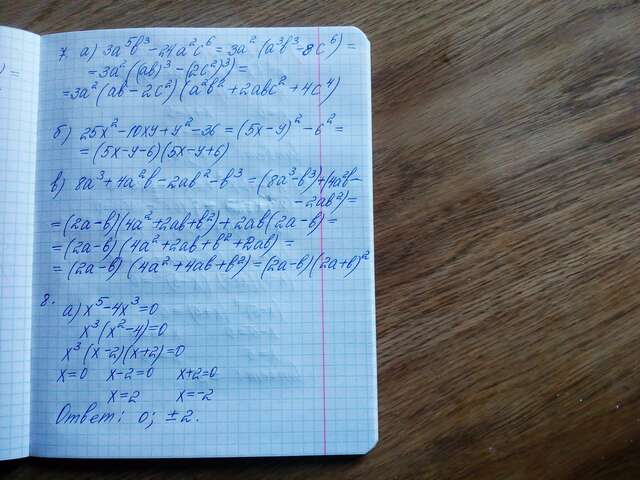 7. а) 3a⁵b³ - 24a²c⁶ = 3a² (a³b³ - 8c⁶) =
= 3a² ((ab)³ - (2c²)³) =
= 3a² (ab - 2c²) (a²b² + 2abc² + 4c⁴)
б) 25x² - 10xy + y² - 36 = (5x - y)² - 6² =
= (5x - y - 6)(5x - y + 6)
в) 8a³ + 4a²b - 2ab² - b³ = (8a³ - b³) + (4a²b -
- 2ab²) =
= (2a - b)(4a² + 2ab + b²) + 2ab(2a - b) =
= (2a - b) (4a² + 2ab + b² + 2ab) =
= (2a - b) (4a² + 4ab + b²) = (2a - b)(2a + b)²
8.
а) x⁵ - 4x³ = 0
x³ (x² - 4) = 0
x³ (x - 2)(x + 2) = 0
x = 0 x - 2 = 0 x + 2 = 0
x = 2 x = -2
Ответ: 0; ± 2.